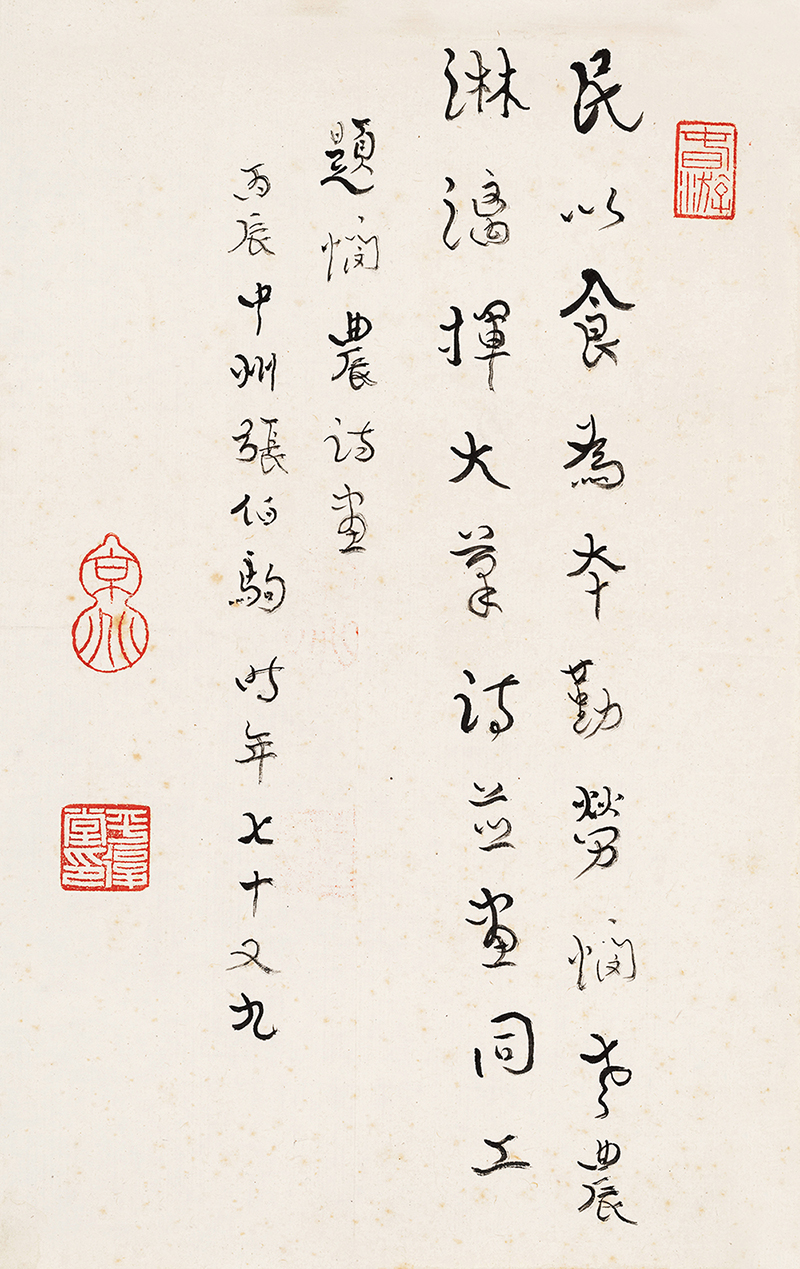 春游
民以食為本勤勞憫老農
淋漓揮大筆詩並畫同工
題憫農詩畫
丙辰中州張伯駒時年七十又九
京兆
平復堂印